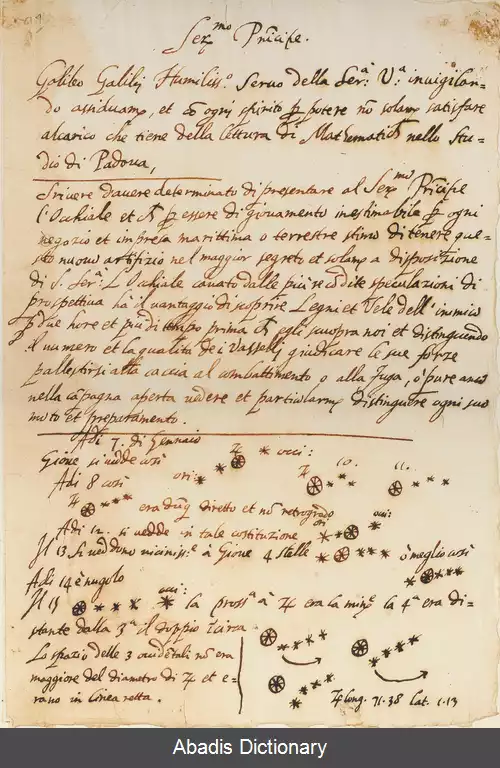 Ser.mo Pri͂cipe.
Galileo Galilej Humiliss.o Seruo della Ser.a V.a inuigilan-
do assiduam.te, et co͂ ogni spirito p͂ potere no͂ solam.te satisfare
alcarico che tiene della lettura di Mathematich nello Stu-
dio di Padoua,
Scriuere dauere determinato di presentare al Ser.mo Pri͂cipe
l'Occhiale et p͂ essere di giouamento inestimabile p͂ ogni
negozio et impresa marittima o terrestre stimo di tenere que-
sto nuouo artifizio nel maggior segreto et solam.te a disposizione
di S. Ser.a L'Occhiale cauato dalle piu re co͂dite speculazioni di
prospettiua ha il uantaggio di scoprire Legni et Vele dell'inimico
p͂ due hore et piu di tempo prima ch egli scuopra noi et distinguendo
il numero et la qualita de i Vasselli giudicare le sue forze
pallestirsi alla caccia al combattimento o alla fuga, o pure anco
nella ca͂pagna aperta uedere et particolarm.te distinguere ogni suo
moto et preparamento.
Adi 7. di Gennaio
Gioue si uedde cosi occi:
Adi 8 cosi ori: 10. 11.
era du͂q diretto et no͂ retrogrado
Adi 12. si uedde in tale costituzione ori occi:
Il 13 si ueddono uiciniss.e à Gioue 4 stelle ò meglio cosi
Adi 14 è nugolo
Il 15 occi: la pross.a à ♃ era la min.e la 4.a era di-
stante dalla 3.a il doppio Circa
Lo spazio delle 3 occide͂tali no͂ era
maggiore del diametro di ♃ et e-
rano in linea retta.
♃ long. 71.38 lat. 1.13
Abadis Dictionary